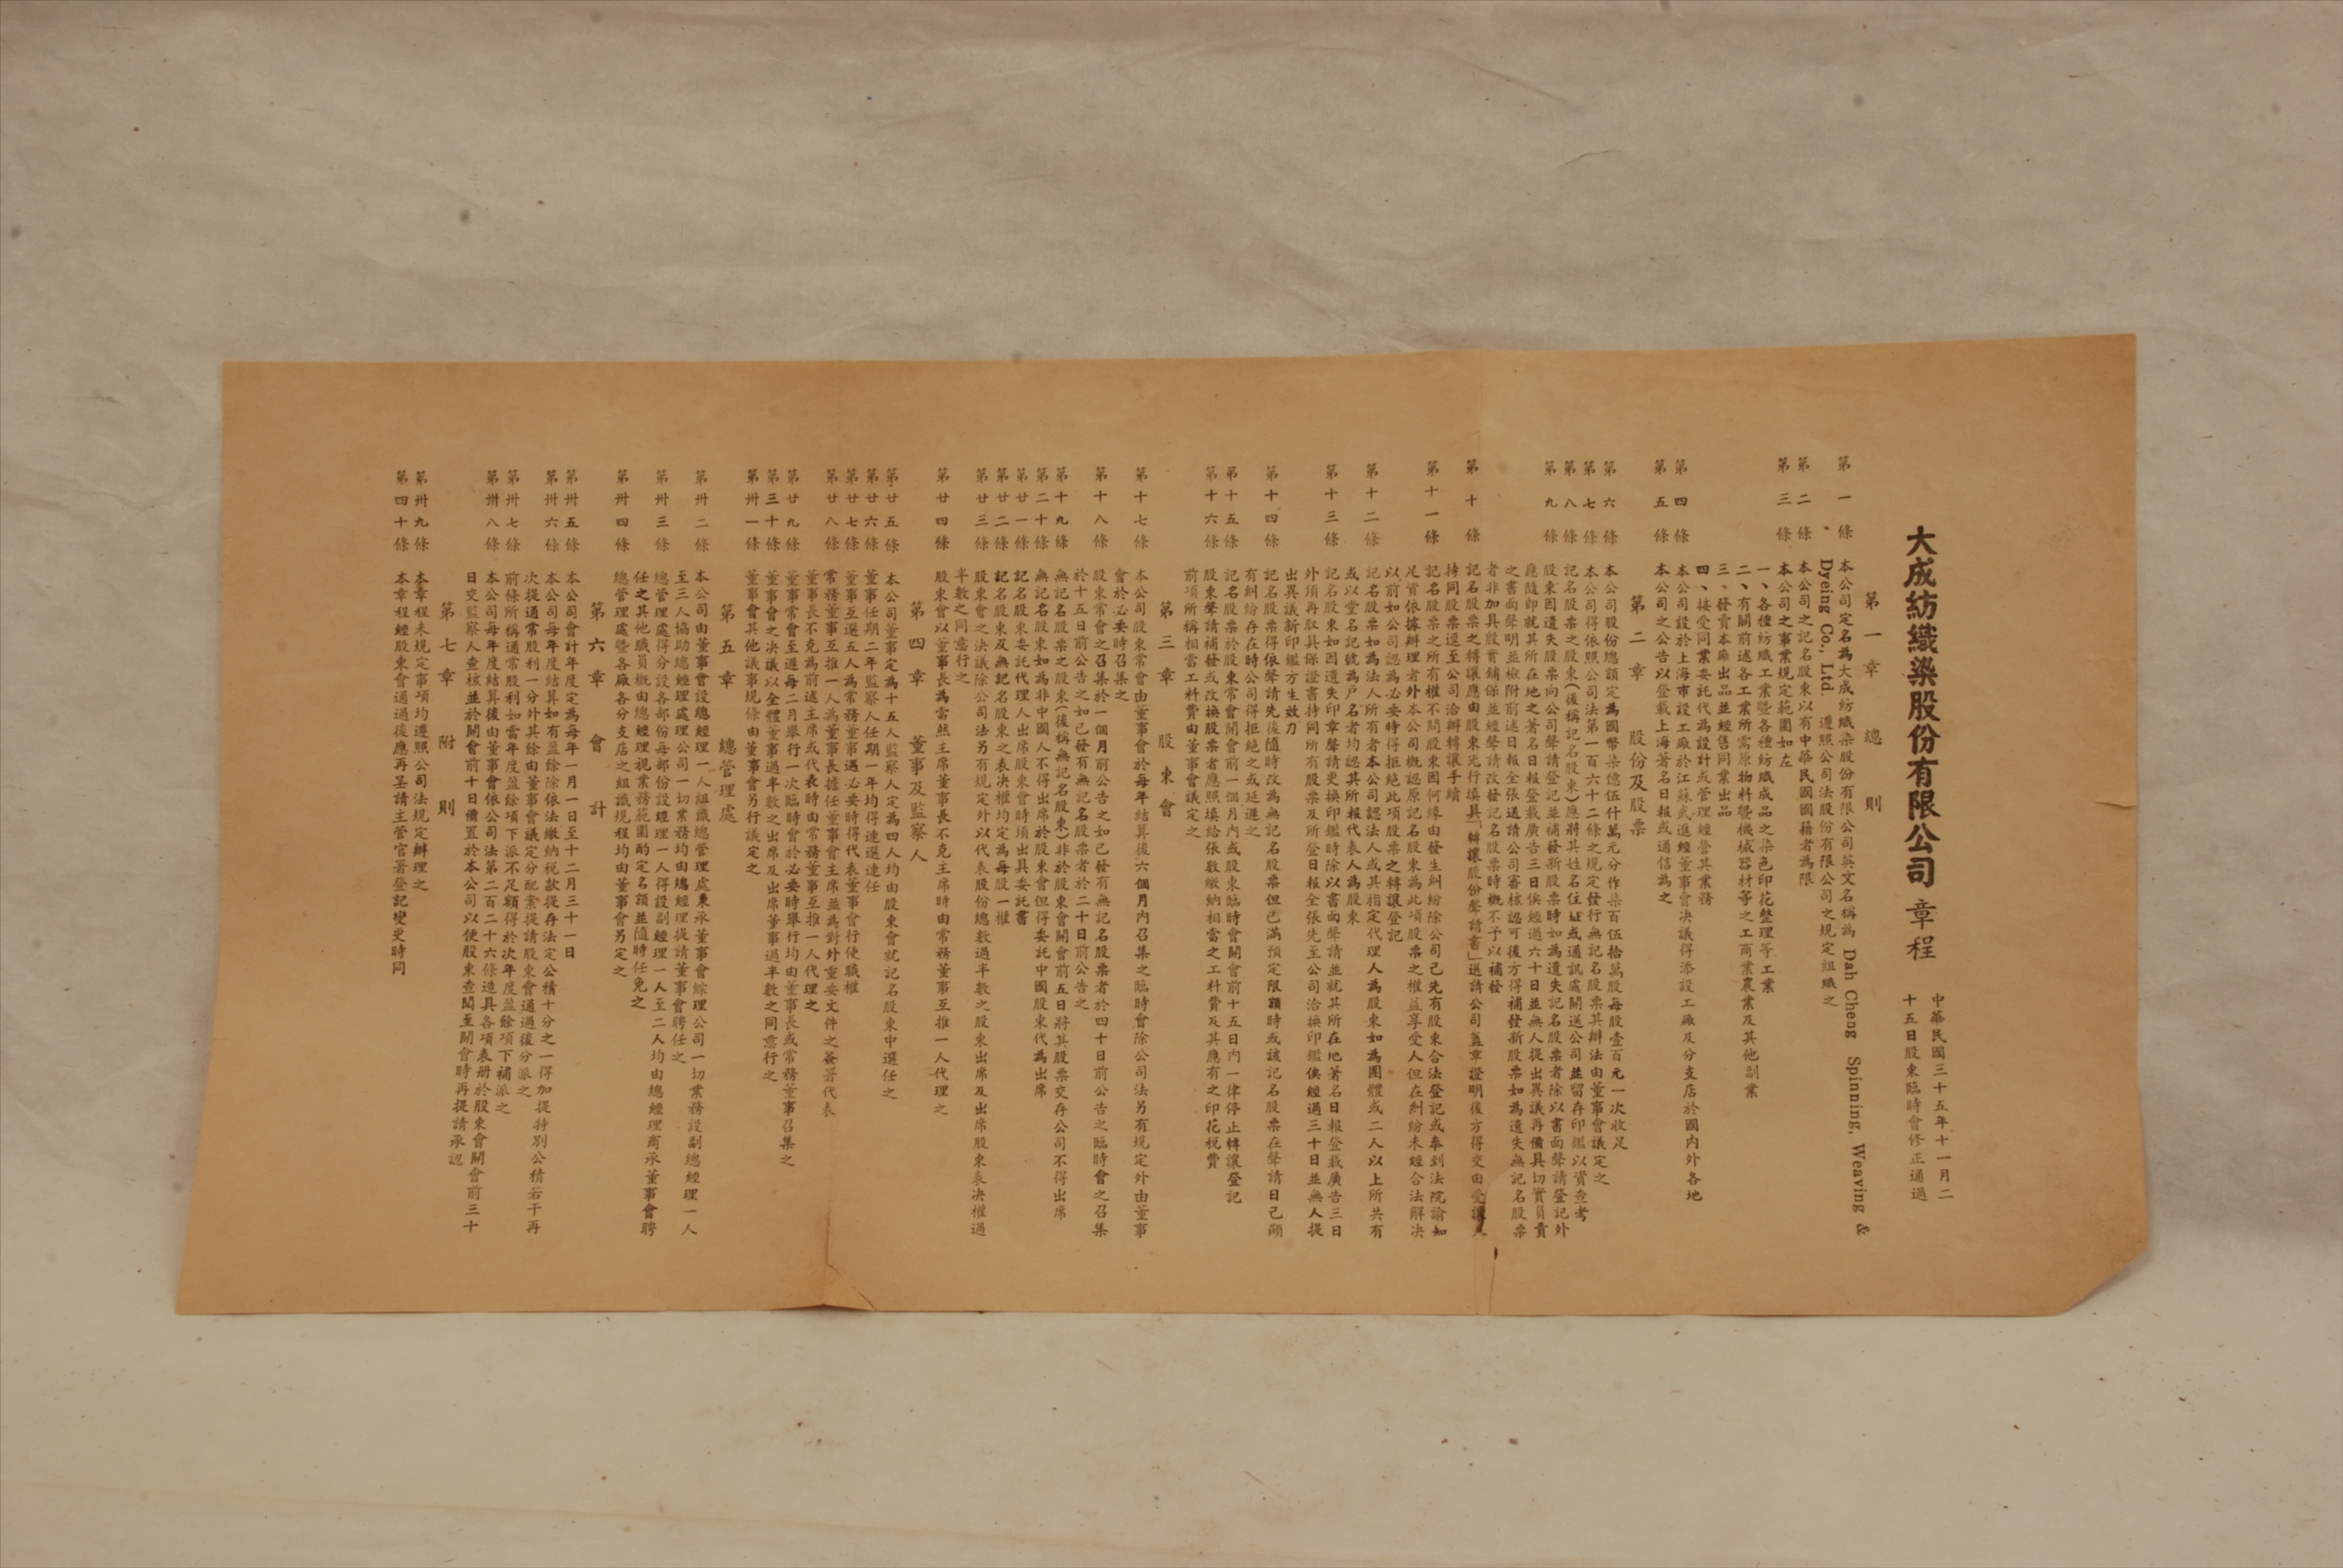 大成紡織染股份有限公司章程
中華民國三十五年十一月二
十五日股東臨時會修正通過
第一章 總則
第一條 本公司定名為大成紡織染股份有限公司英文名稱為 Dah Cheng Spinning, Weaving &
Dyeing Co., Ltd. 遵照公司法股份有限公司之規定組織之
第二條 本公司之記名股東以有中華民國國籍者為限
第三條 本公司之事業規定範圍如左
一、各種紡織工業暨各種紡織成品之染色印花整理等工業
二、有關前述各工業所需原物料暨機械器材等之工商業農業及其他副業
三、發賣本廠出品並經售同業出品
四、接受同業委託代為設計或管理經營其業務
第四條 本公司設於上海市設工廠於江蘇武進經董事會決議得添設工廠及分支店於國內外各地
第五條 本公司之公告以登載上海著名日報或通信為之
第二章 股份及股票
第六條 本公司股份總額定為國幣柒億伍仟萬元分作柒百伍拾萬股每股壹百元一次收足
第七條 本公司得依照公司法第一百六十二條之規定發行無記名股票其辦法由董事會議定之
第八條 記名股票之股東(後稱記名股東)應將其姓名住址或通訊處開送公司並留存印鑑以資查考
第九條 股東因遺失股票向公司聲請登記並補發新股票時如為遺失記名股票者除以書面聲請登記外
應隨即就其所在地之著名日報登載廣告三日俟經過六十日並無人提出異議再備具切實負責
之書面聲明並檢附前述日報全張送請公司審核認可後方得補發新股票如為遺失無記名股票
者非加具殷實鋪保並經聲請改發記名股票時概不予以補發
第十條 記名股票之轉讓應由股東先行填具「轉讓股份聲請書」送請公司蓋章證明後方得交由受讓人
持同股票逕至公司洽辦轉讓手續
第十一條 記名股票之所有權不問股東因何緣由發生糾紛除公司已先有股東合法登記或奉到法院諭知
足資依據辦理者外本公司概認原記名股東為此項股票之權益享受人但在糾紛未經合法解決
以前如公司認為必要時得拒絕此項股票之轉讓登記
第十二條 記名股票如為法人所有者本公司認法人或其指定代理人為股東如為團體或二人以上所共有
或以堂名記號為戶名者均認其所報代表人為股東
第十三條 記名股東如因遺失印章聲請更換印鑑時除以書面聲請並就其所在地著名日報登載廣告三日
外須再取具保證書持同所有股票及所登日報全張先至公司洽換印鑑俟經過三十日並無人提
出異議新印鑑方生效力
第十四條 記名股票得依聲請先後隨時改為無記名股票但已滿預定限額時或該記名股票在聲請日已顯
有糾紛存在時公司得拒絕之或延遲之
第十五條 記名股票於股東常會開會前一個月內或股東臨時會開會前十五日內一律停止轉讓登記
第十六條 股東聲請補發或改換股票者應照填給張數繳納相當之工料費及其應有之印花稅費
前項所稱相當工料費由董事會議定之
第三章 股東會
第十七條 本公司股東常會由董事會於每年結算後六個月內召集之臨時會除公司法另有規定外由董事
會於必要時召集之
第十八條 股東常會之召集於一個月前公告之如已發有無記名股票者於四十日前公告之臨時會之召集
於十五日前公告之如已發有無記名股票者於二十日前公告之
第十九條 無記名股票之股東(後稱無記名股東)非於股東會開會前五日將其股票交存公司不得出席
第二十條 無記名股東如為非中國人不得出席於股東會但得委託中國股東代為出席
第廿一條 記名股東委託代理人出席股東會時須出具委託書
第廿二條 記名股東及無記名股東之表決權均定為每股一權
第廿三條 股東會之決議除公司法另有規定外以代表股份總數過半數之股東出席及出席股東表決權過
半數之同意行之
第廿四條 股東會以董事長為當然主席董事長不克主席時由常務董事互推一人代理之
第四章 董事及監察人
第廿五條 本公司董事定為十五人監察人定為四人均由股東會就記名股東中選任之
第廿六條 董事任期二年監察人任期一年均得連選連任
第廿七條 董事互選五人為常務董事遇必要時得代表董事會行使職權
第廿八條 常務董事互推一人為董事長擔任董事會主席並為對外重要文件之簽署代表
董事長不克為前述主席或代表時由常務董事互推一人代理之
第廿九條 董事常會至遲每二月舉行一次臨時會於必要時舉行均由董事長或常務董事召集之
第三十條 董事會之決議以全體董事過半數之出席及出席董事過半數之同意行之
第卅一條 董事會其他議事規條由董事會另行議定之
第五章 總管理處
第卅二條 本公司由董事會設總經理一人組織總管理處秉承董事會綜理公司一切業務設副總經理一人
至三人協助總經理處理公司一切業務均由總經理提請董事會聘任之
第卅三條 總管理處得分設各部份每部份設經理一人得設副經理一人至二人均由總經理商承董事會聘
任之其他職員概由總經理視業務範圍酌定名額並隨時任免之
第卅四條 總管理處暨各廠各分支店之組織規程均由董事會另定之
第六章 會計
第卅五條 本公司會計年度定為每年一月一日至十二月三十一日
第卅六條 本公司每年度結算如有盈餘除依法繳納稅款提存法定公積十分之一得加提特別公積若干再
次提通常股利一分外其餘由董事會議定分配案提請股東會通過後分派之
第卅七條 前條所稱通常股利如當年度盈餘項下派不足額得於次年度盈餘項下補派之
第卅八條 本公司每年度結算後由董事會依公司法第二百二十六條造具各項表冊於股東會開會前三十
日交監察人查核並於開會前十日備置於本公司以便股東查閱至開會時再提請承認
第七章 附則
第卅九條 本章程未規定事項均遵照公司法規定辦理之
第四十條 本章程經股東會通過後應再呈請主管官署登記變更時同